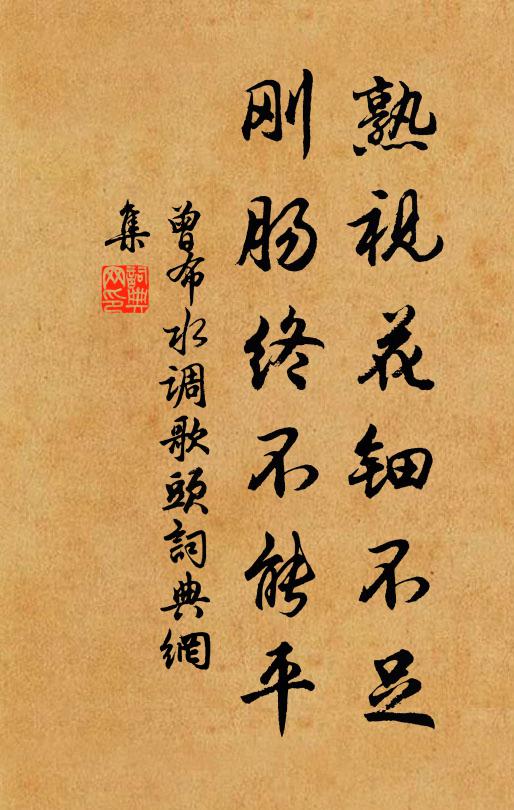 熟视花钿不足
刚肠终不能平
曾布水调歌头詞典網
集
詞典網印